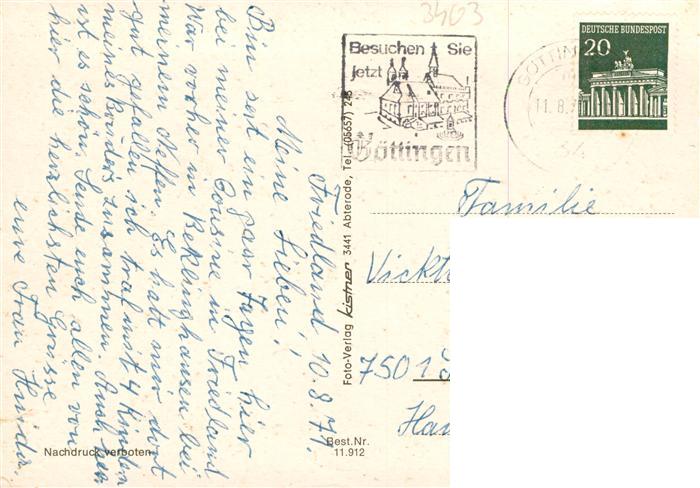 Friedland 10.8.71.
Meine Lieben!
Bin seit ein paar Tagen hier
bei meiner Cousine in Friedland
War vorher in Reklinghausen bei
meinem Neffen. Es hatt mir dort
gut gefallen ich traf mit 4 Kinder
meines Bruders zusammen. Auch hier
ist es schön. Sende euch allen von
hier die herzlichsten Grüsse
eure Frau
Nachdruck verboten
Foto-Verlag kistner 3441 Abterode, Tel. (05657) 245
Best.Nr.
11.912
3403
Besuchen Sie
jetzt
Göttingen
DEUTSCHE BUNDESPOST
20
GÖTTIN
11.8.
34
Familie
7501